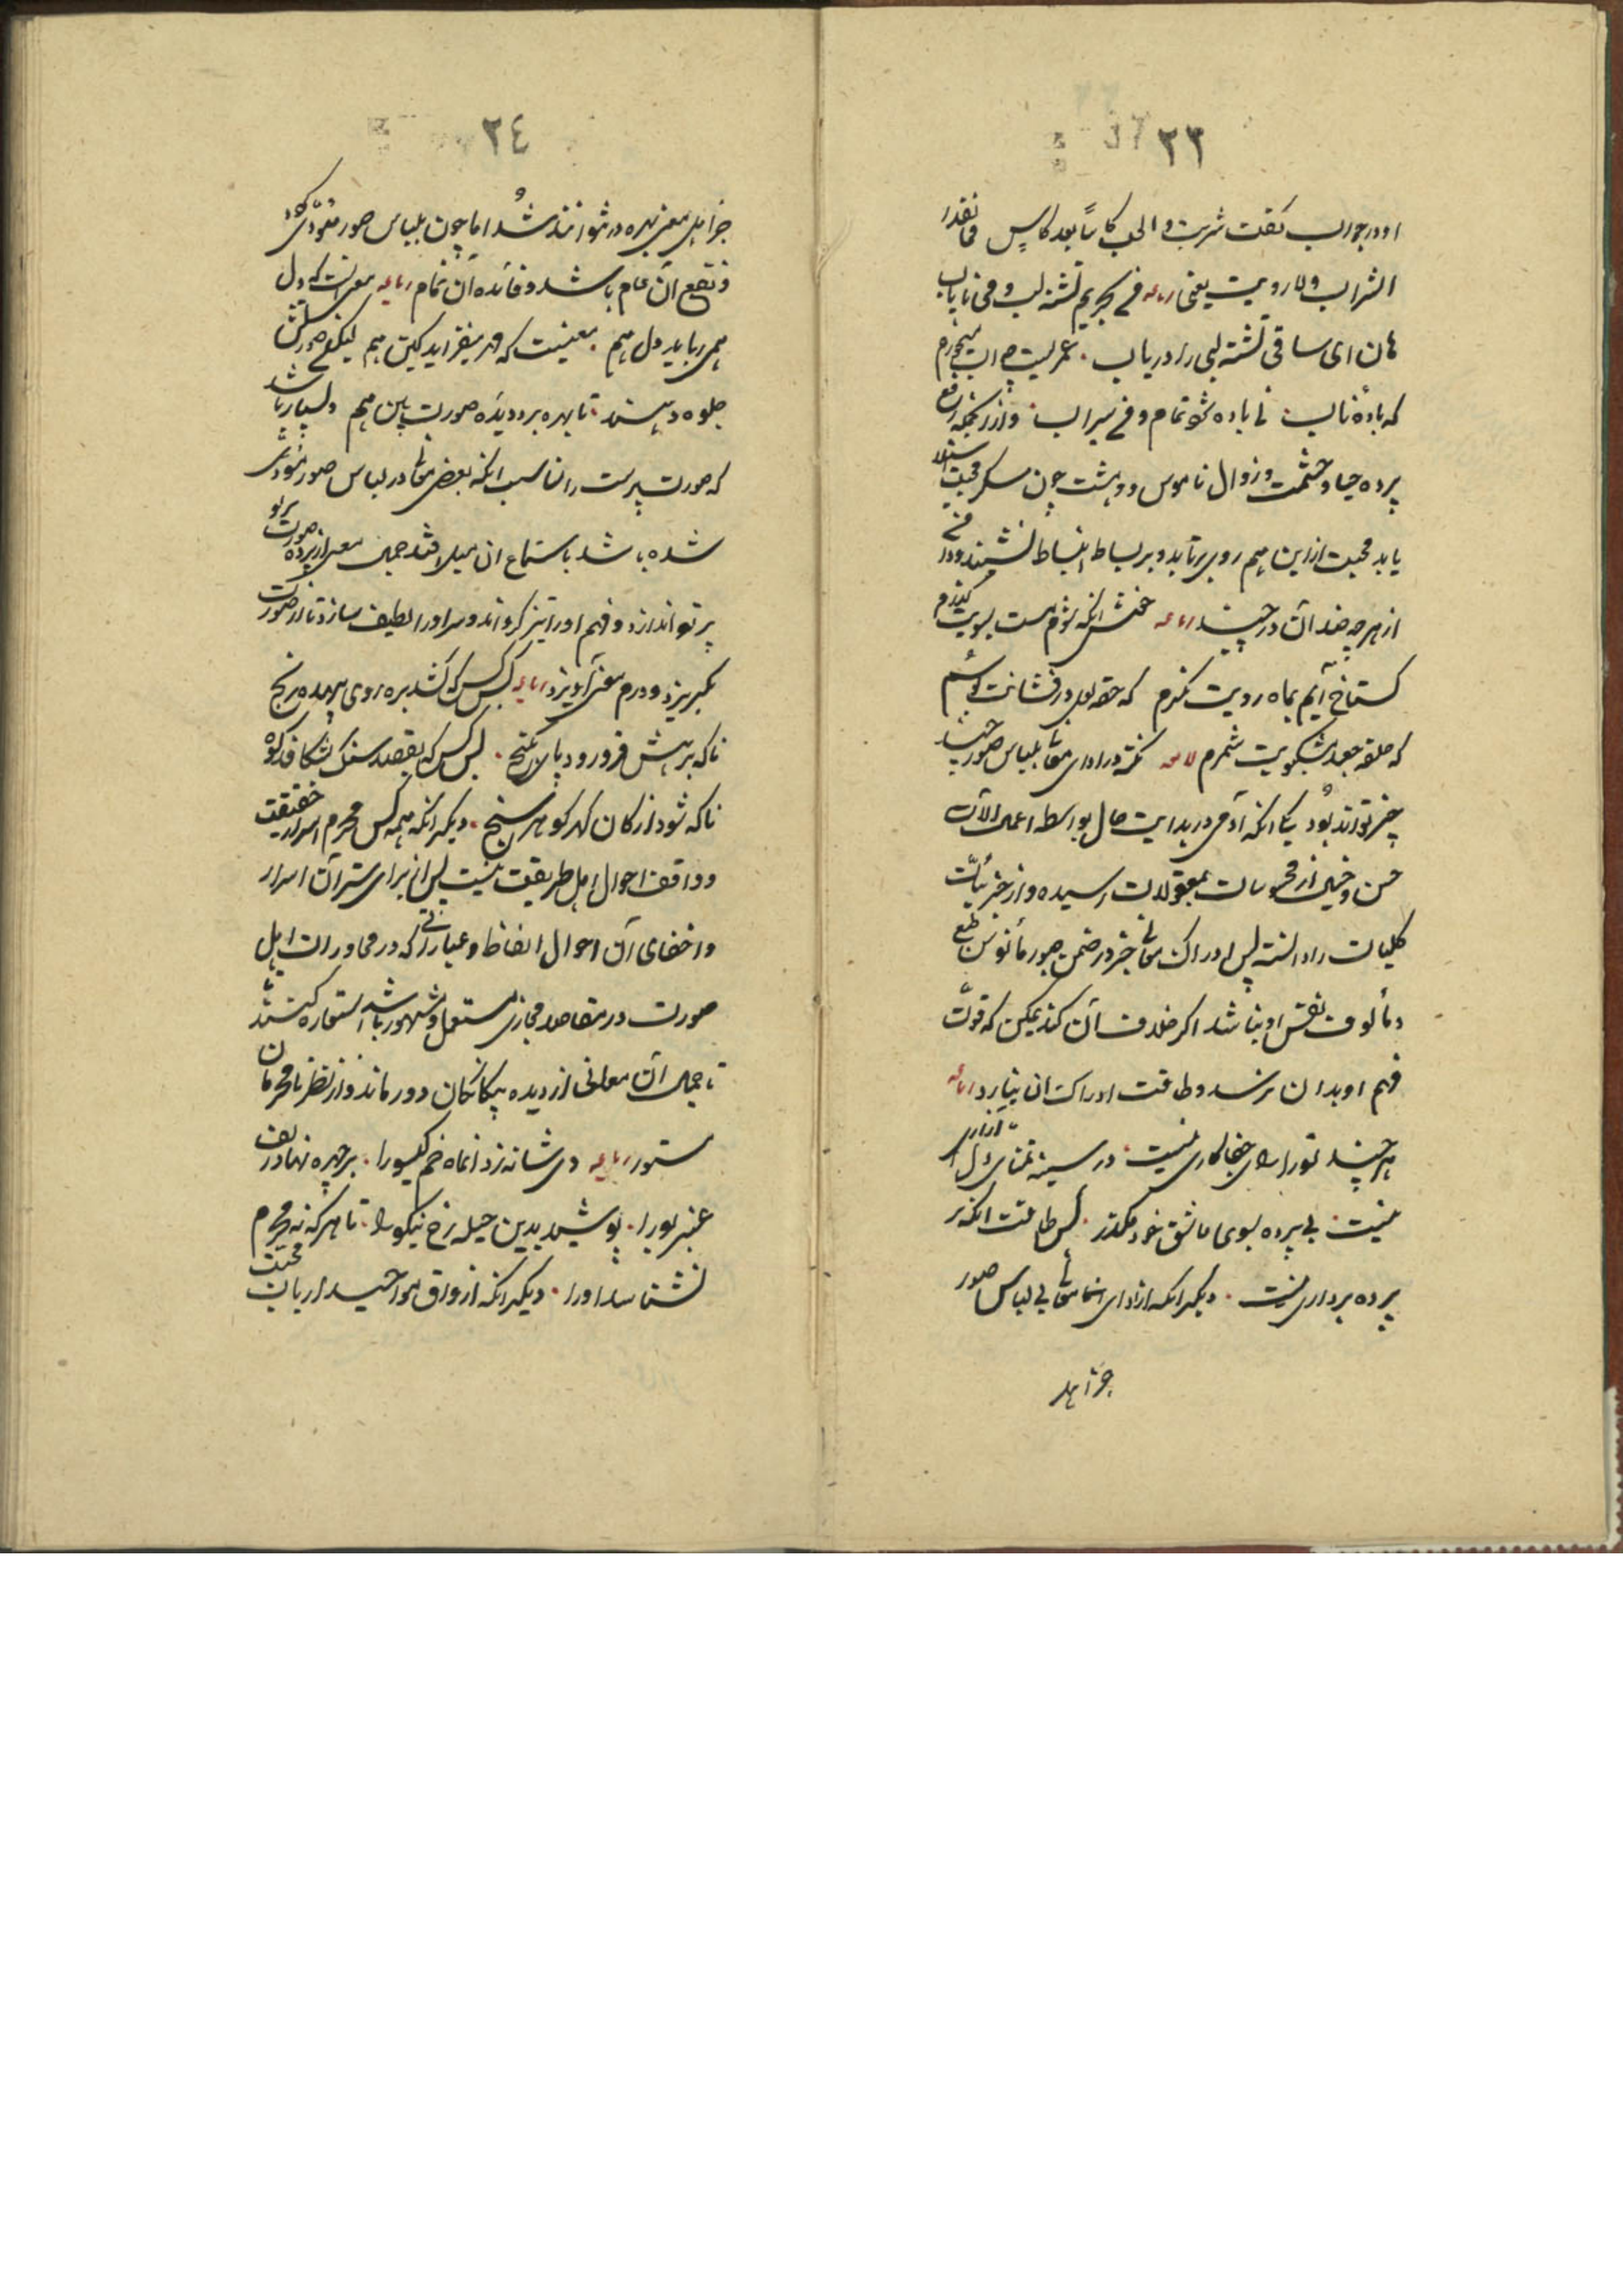 ٢٣
او در جواب گفت شربت الحب کاساً بعد کاس فما نفد
الشراب ولا رویت یعنی رباعیه
هان ای ساقی تشنه لبی را دریاب . عمریست چو آب میخورم
که بادۀ ناب نی باده شود تمام و نی سیراب
پرده حیا و حشمت و زوال ناموس و دهشت چون سکر محبت استیلا
یابد محبت از این همه روی برتابد و بر بساط انبساط نشیند و دامن
از هرچه ضد آن درچیند رباعیه خوش آنکه شوم مست بسویت گذرم
گستاخ آیم بماه رویت نگرم گه حقه لعل درفشانت بوسم
گه حلقه جعد مشکبویت شمرم لامعه نکته در ادای معانی بلباس صور چند
چیز تواند بود یکی آنکه آدمی در بدایت حال بواسطه اعمال آلات
حس و خیال از محسوسات بمعقولات رسیده و از جزئیات
کلیات را دانسته پس ادراک معانی جز در ضمن صور مأنوس طبع
و مألوف نفس او نباشد اگر خلاف آن کند یمکن که قوت
فهم او بدان نرسد و طاقت ادراک آن نیارد رباعیه
هر چند ترا رای جفاکاری نیست . در سینه تمنای دل آزاری
نیست . بی پرده بسوی عاشق خود مگذر . کس طاقت آنکه بر
پرده برداری نیست . دیگر آنکه از ادای معانی بی لباس صور
جز اهل
٢٤
جز اهل معنی بهره ور نتوانند شد اما چون بلباس صور مؤدی گردد
نفع آن عام باشد و فائده آن تمام رباعیه معنی است که دل
همی رباید دل هم . معنیست که مهر میفزاید کین هم لیکن بلباس صورتش
جلوه دهند . تا بهره برد دیده صورت بین هم و بسیار باشد
که صورت پرست را بمناسبت آنکه بعضی معانی در لباس صور مؤدی
شده باشد باستماع آن میل افتد جمال معنی از پرده صورت پرتو
پرتو اندازد و فهم او را تیز گرداند و سر او را لطیف سازد تا از صورت
بگریزد و در معنی آویزد رباعیه بس کس که کشد بره روی بیهده رنج
ناگه برهش فرو رود پای بگنج . بس کس که بقصد سنگ بشکافد کوه
ناگه شود از کان گهر گوهر سنج . دیگر آنکه همه کس محرم اسرار حقیقت
و واقف احوال اهل طریقت نیست پس از برای ستر آن اسرار
و اخفای آن احوال الفاظ و عباراتی که در محاورات اهل
صورت در مقاصد مجازی مستعمل و مشهور باشد استعاره کنند
تا جمال آن معانی از دیده بیگانگان دور ماند و از نظر نامحرمان
مستور رباعیه دی شانه زد آنماه خم گیسو را . بر چهره نهاد زلف
عنبر بو را . پوشید بدین حیله رخ نیکو را . تا هر که نه محرم
نشناسد او را . دیگر آنکه اذواق و مواجید ارباب محبت